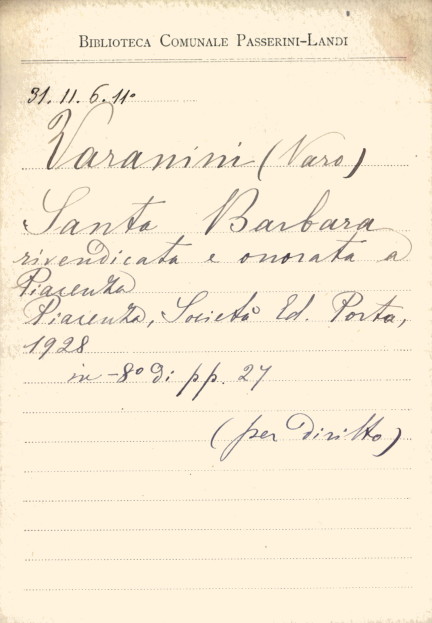 BIBLIOTECA COMUNALE PASSERINI-LANDI
31. 11. 6. 11º
Varanini (Varo)
Santa Barbara
rivendicata e onorata a
Piacenza
Piacenza, Società Ed. Porta,
1928
in -8º di pp. 27
(per diritto)